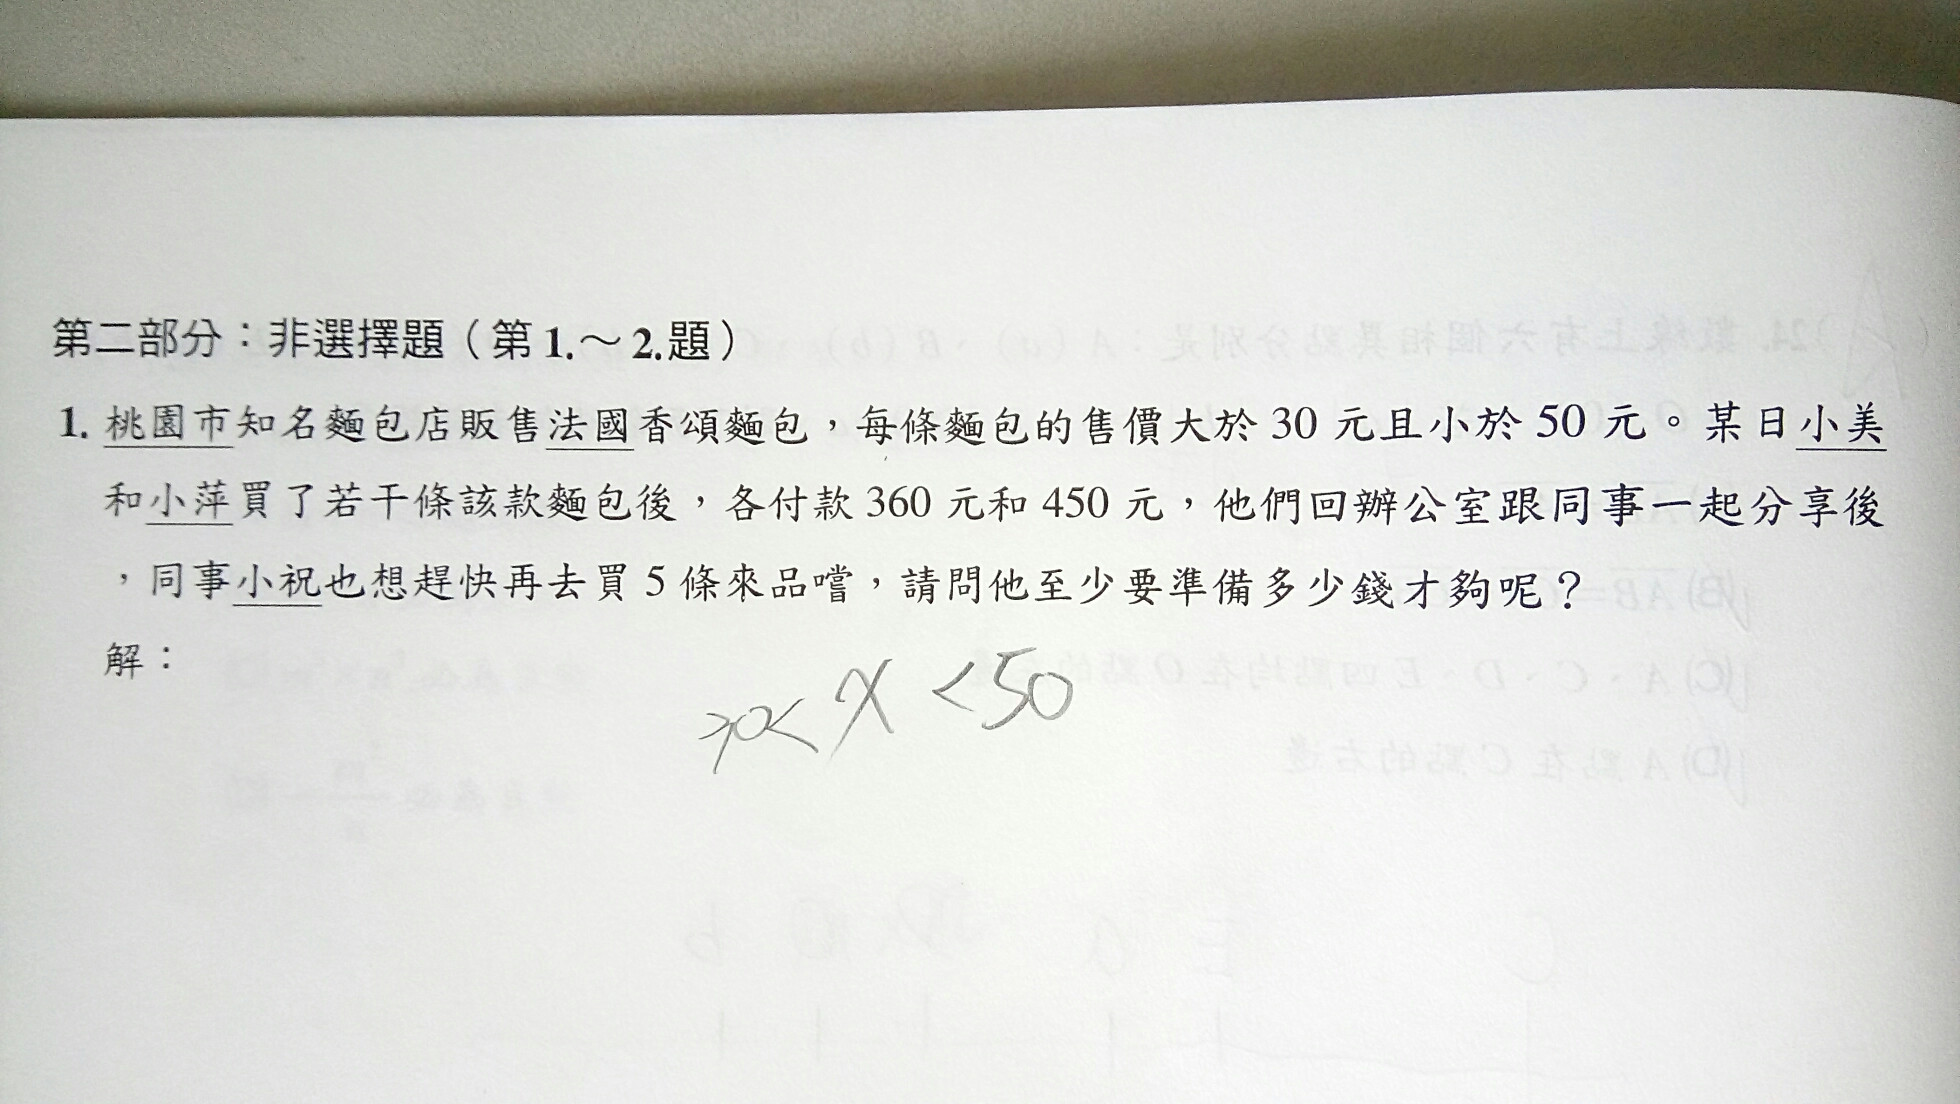 第二部分：非選擇題（第1.～2.題）
1. 桃園市知名麵包店販售法國香頌麵包，每條麵包的售價大於 30 元且小於 50 元。某日小美
和小萍買了若干條該款麵包後，各付款 360 元和 450 元，他們回辦公室跟同事一起分享後
，同事小祝也想趕快再去買 5 條來品嚐，請問他至少要準備多少錢才夠呢？
解：
30< X <50